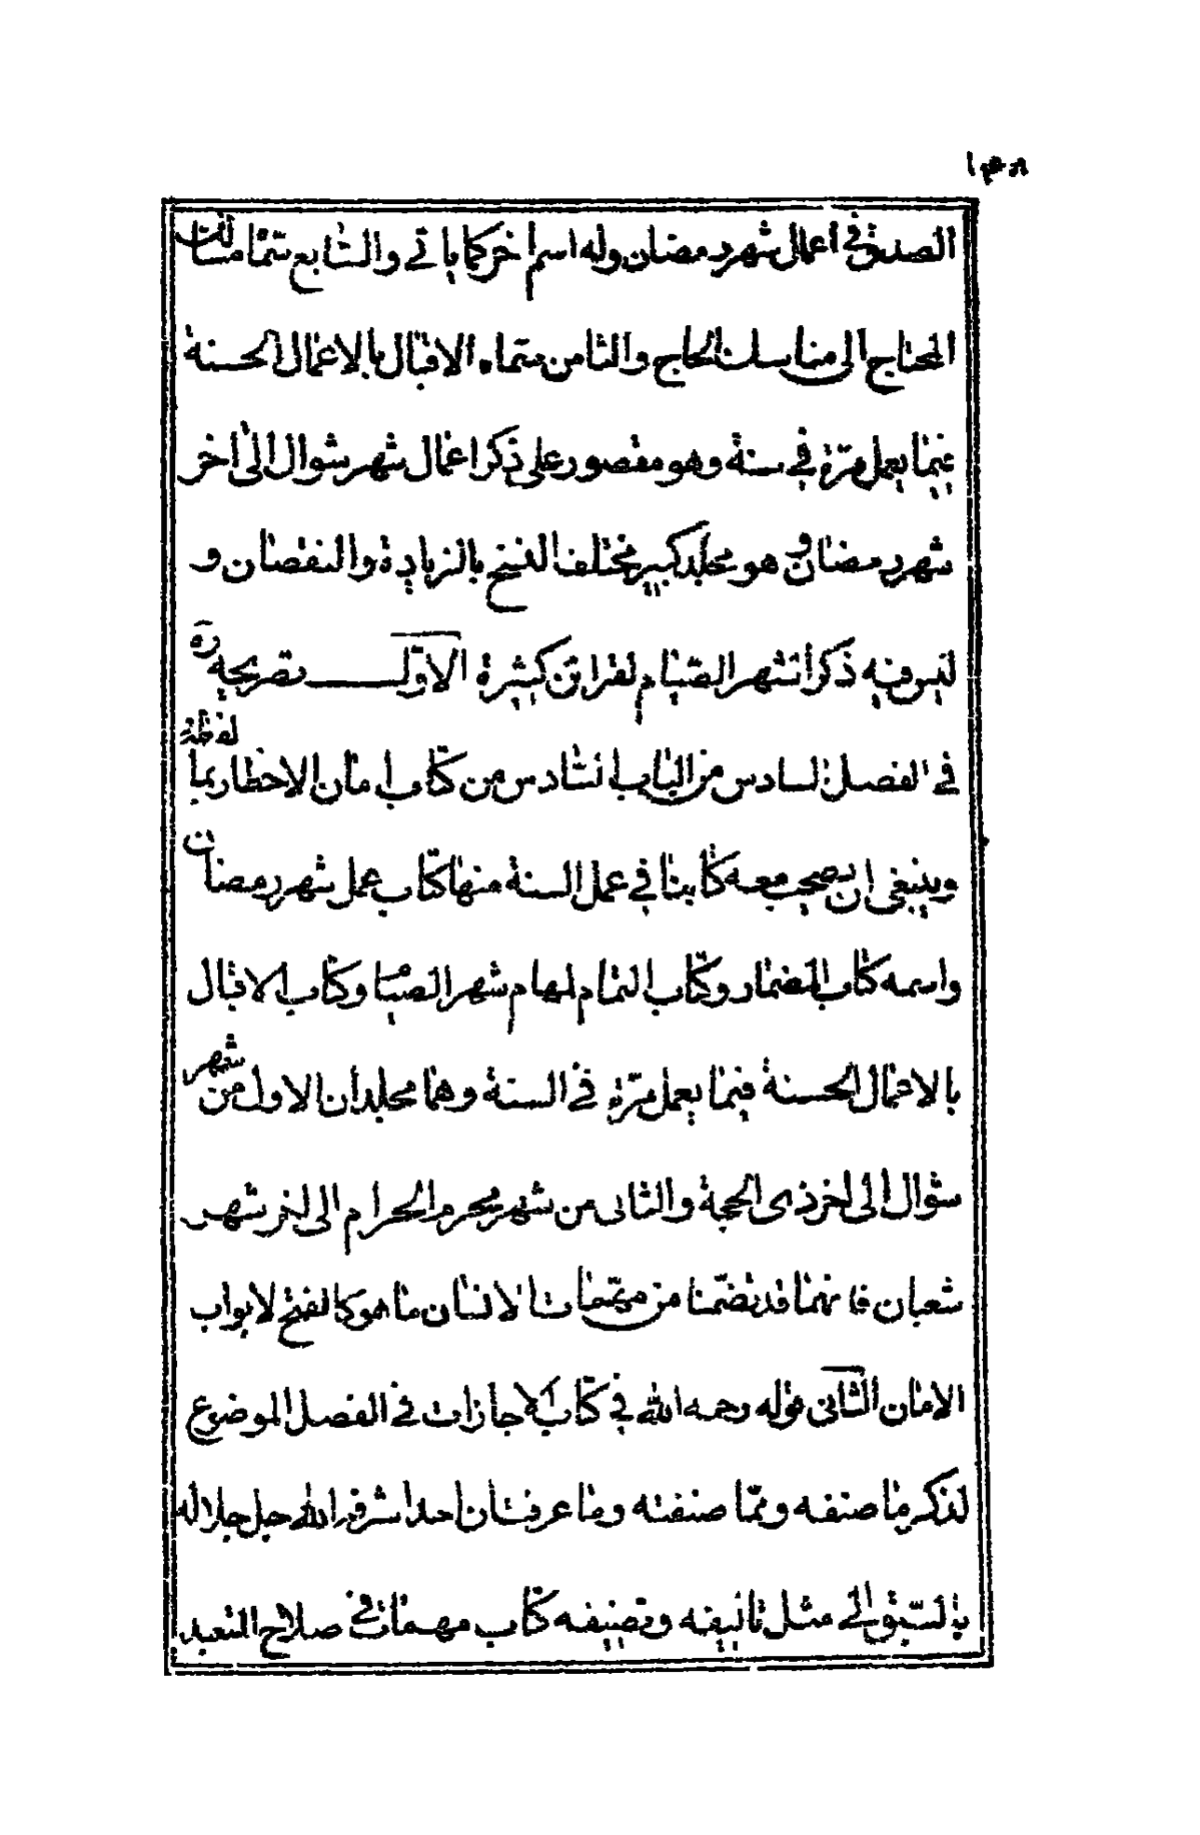 الصدق في اعمال شهر رمضان وله اسم اخر كما ياتي والسّابع سمّاه مسالك
المحتاج الى مناسك الحاج والثامن سمّاه الاقبال بالاعمال الحسنة
فيما يعمل مرّة في سنة وهو مقصور على ذكر اعمال شهر شوال الى اخر
شهر رمضان و هو مجلد كبير مختلف النسخ بالزيادة والنقصان و
ليس فيه ذكر اشهر الصّيام لقرائن كثيرة الاوّل تصريحه ره
في الفصل السادس من الباب السّادس من كتاب امان الاخطار بما لفظه
وينبغي ان يصحب معه كتابنا في عمل السنة منها كتاب عمل شهر رمضان
واسمه كتاب المضمار وكتاب التمام لمهام شهر الصيام وكتاب الاقبال
بالاعمال الحسنة فيما يعمل مرّة في السنة وهما مجلدان الاول من شهر
شوال الى اخر ذى الحجة والثانى من شهر محرم الحرام الى اخر شهر
شعبان فانهما قد تضمّنا من مهمّات الانسان ما هو كالفتح لابواب
الامان الثانى قوله رحمه الله في كتاب الاجازات في الفصل الموضوع
لذكر ما صنفه ومّما صنفته وما عرفت ان احدا شرفه الله جل جلاله
بالسّبق الى مثل تاليفه وتصنيفه كتاب مهمات في صلاح المتعبد